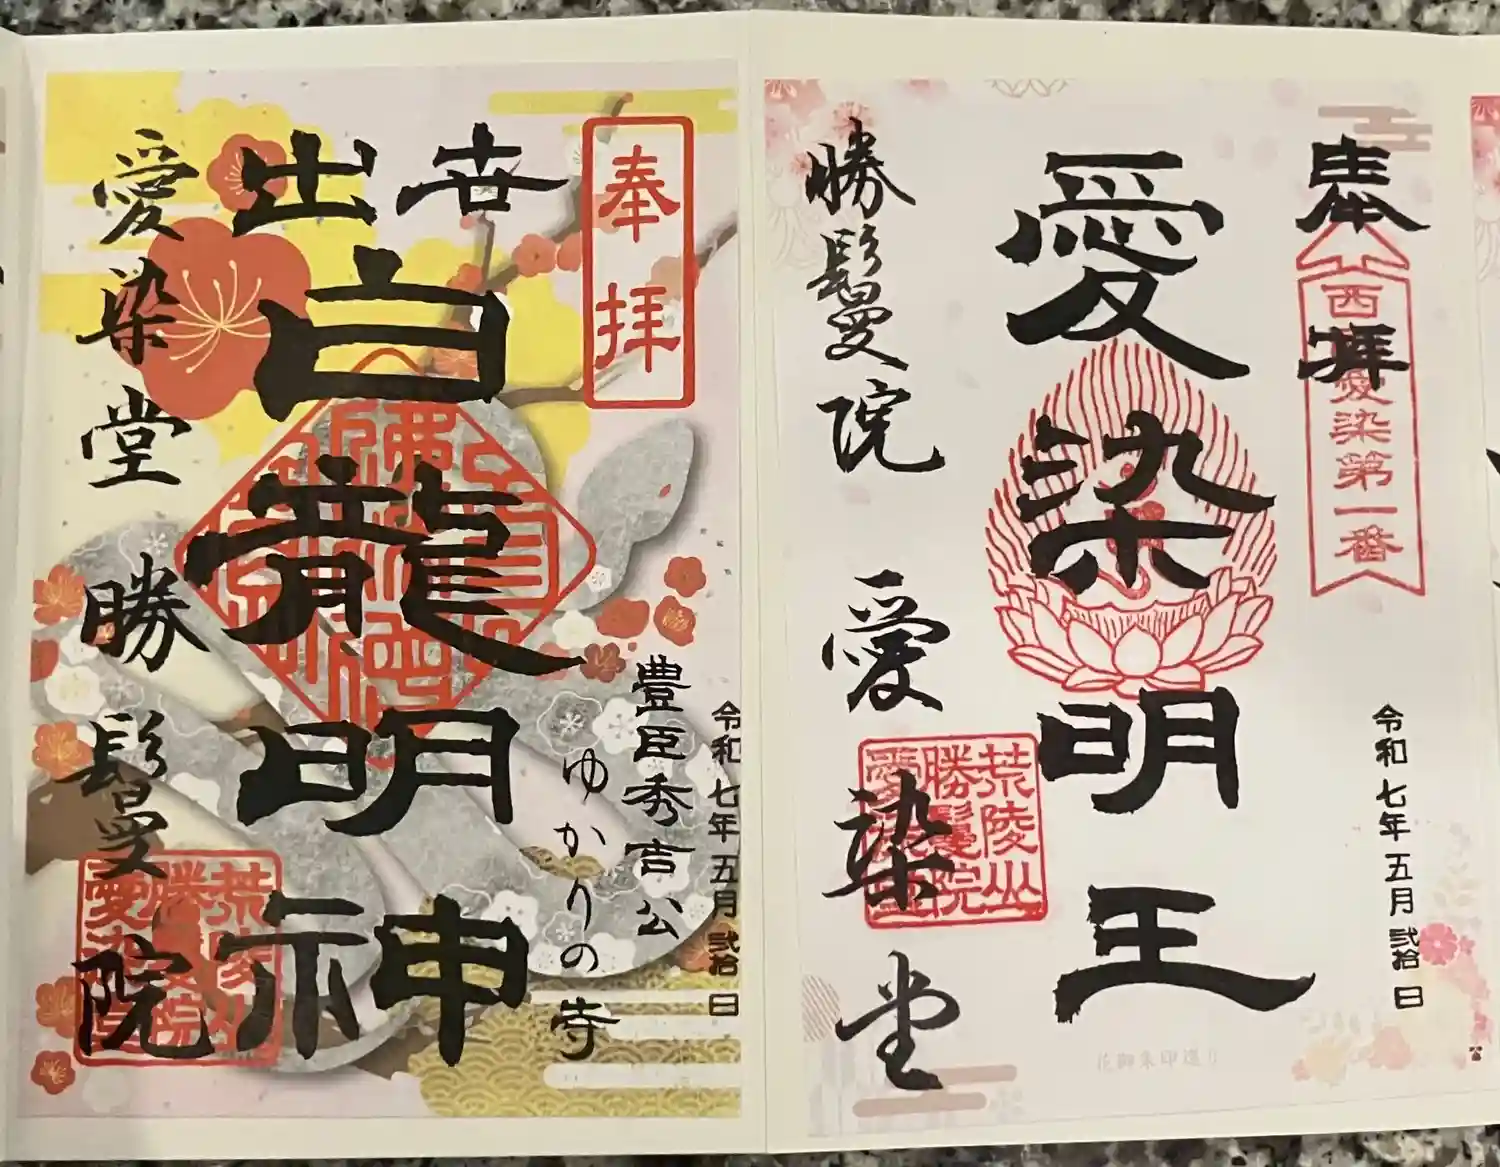 奉拝
西愛染第一番
令和七年五月弐拾日
愛染明王
勝鬘院 愛染堂
荒陵山
勝鬘院
愛染堂
花御朱印巡り
奉拝
令和七年五月弐拾日
豊臣秀吉公
ゆかりの寺
出世
白龍明神
愛染堂 勝鬘院
荒陵山
勝鬘院
愛染堂